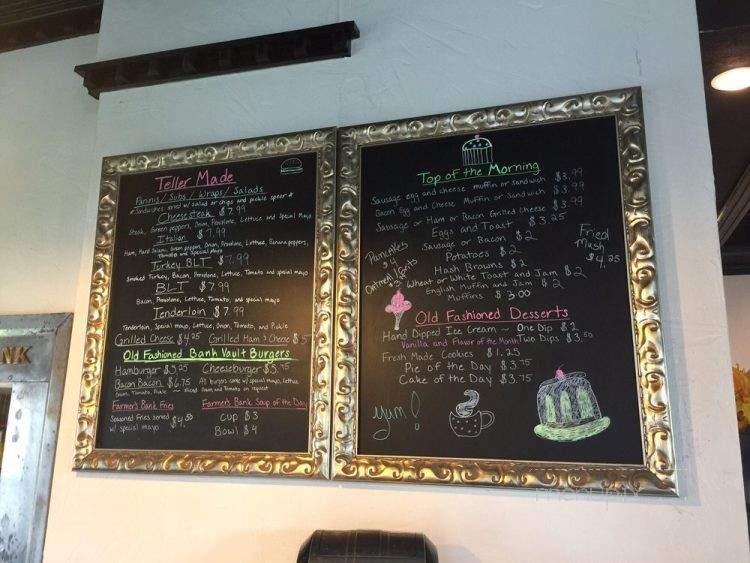 NK
Teller Made
Paninis / Subs / Wraps / Salads
* Sandwiches served w/ salad or chips and pickle spear *
Cheesesteak $7.99
Steak, Green peppers, Onion, Provolone, Lettuce and Special Mayo
Italian $7.99
Ham, Hard Salami, Green peppers, Onion, Provolone, Lettuce, Banana peppers,
Tomato and Special mayo
Turkey BLT $7.99
Smoked Turkey, Bacon, Provolone, Lettuce, Tomato and special mayo
BLT $7.99
Bacon, Provolone, Lettuce, Tomato, and special mayo
Tenderloin $7.99
Tenderloin, Special mayo, Lettuce, Onion, Tomato, and Pickle
Grilled Cheese $4.25 Grilled Ham & Cheese $5
Old Fashioned Bank Vault Burgers
Hamburger $5.25 Cheeseburger $5.75
Bacon Bacon $6.75 All burgers come w/ special mayo, lettuce
Onion, Tomato, Pickle ~ sliced Onion and Tomato on request
Farmer's Bank Fries
Seasoned Fries served
w/ special mayo $4.50
Farmer's Bank Soup of the Day
Cup $3
Bowl $4
Top of the Morning
Sausage egg and cheese muffin or sandwich $3.99
Bacon Egg and Cheese Muffin or Sandwich $3.99
Sausage or Ham or Bacon Grilled Cheese $3.99
Eggs and Toast $3.25
Sausage or Bacon $2
Potatoes $2
Hash Browns $2
Wheat or White Toast and Jam $2
English Muffin and Jam $2
Muffins $3.00
Pancakes
$4
Oatmeal/Grits
$3
Fried
Mush
$4.25
Old Fashioned Desserts
Hand Dipped Ice Cream ~ One Dip $2
Vanilla and Flavor of the Month Two Dips $3.50
Fresh Made Cookies $1.25
Pie of the Day $3.75
Cake of the Day $3.75
Yum!